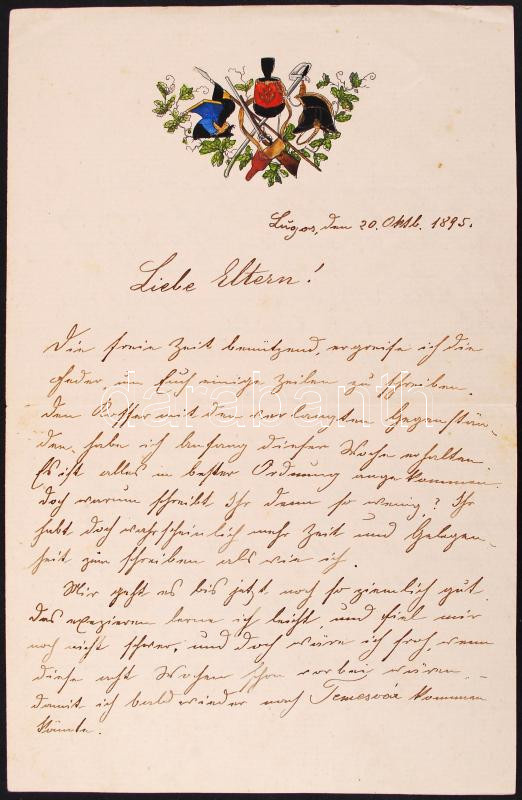 Lugos, den 20. Oktb. 1895.
Liebe Eltern!
Die freie Zeit benützend, ergreife ich die
Feder, um Euch einige Zeilen zu schreiben.
Den Koffer mit den verlangten Gegenstän-
den, habe ich Anfang dieser Woche erhalten.
Es ist alles in bester Ordnung angekommen.
Doch warum schreibt Ihr denn so wenig? Ihr
habt doch wahrscheinlich mehr Zeit und Gelegen-
heit zum schreiben als wie ich.
Mir geht es bis jetzt noch so ziemlich gut.
Das exezieren lerne ich leicht, und fiel mir
noch nicht schwer, und doch wäre ich froh, wenn
diese acht Wochen schon vorbei wären,
damit ich bald wieder nach Temesvár kommen
könnte.
darabanth